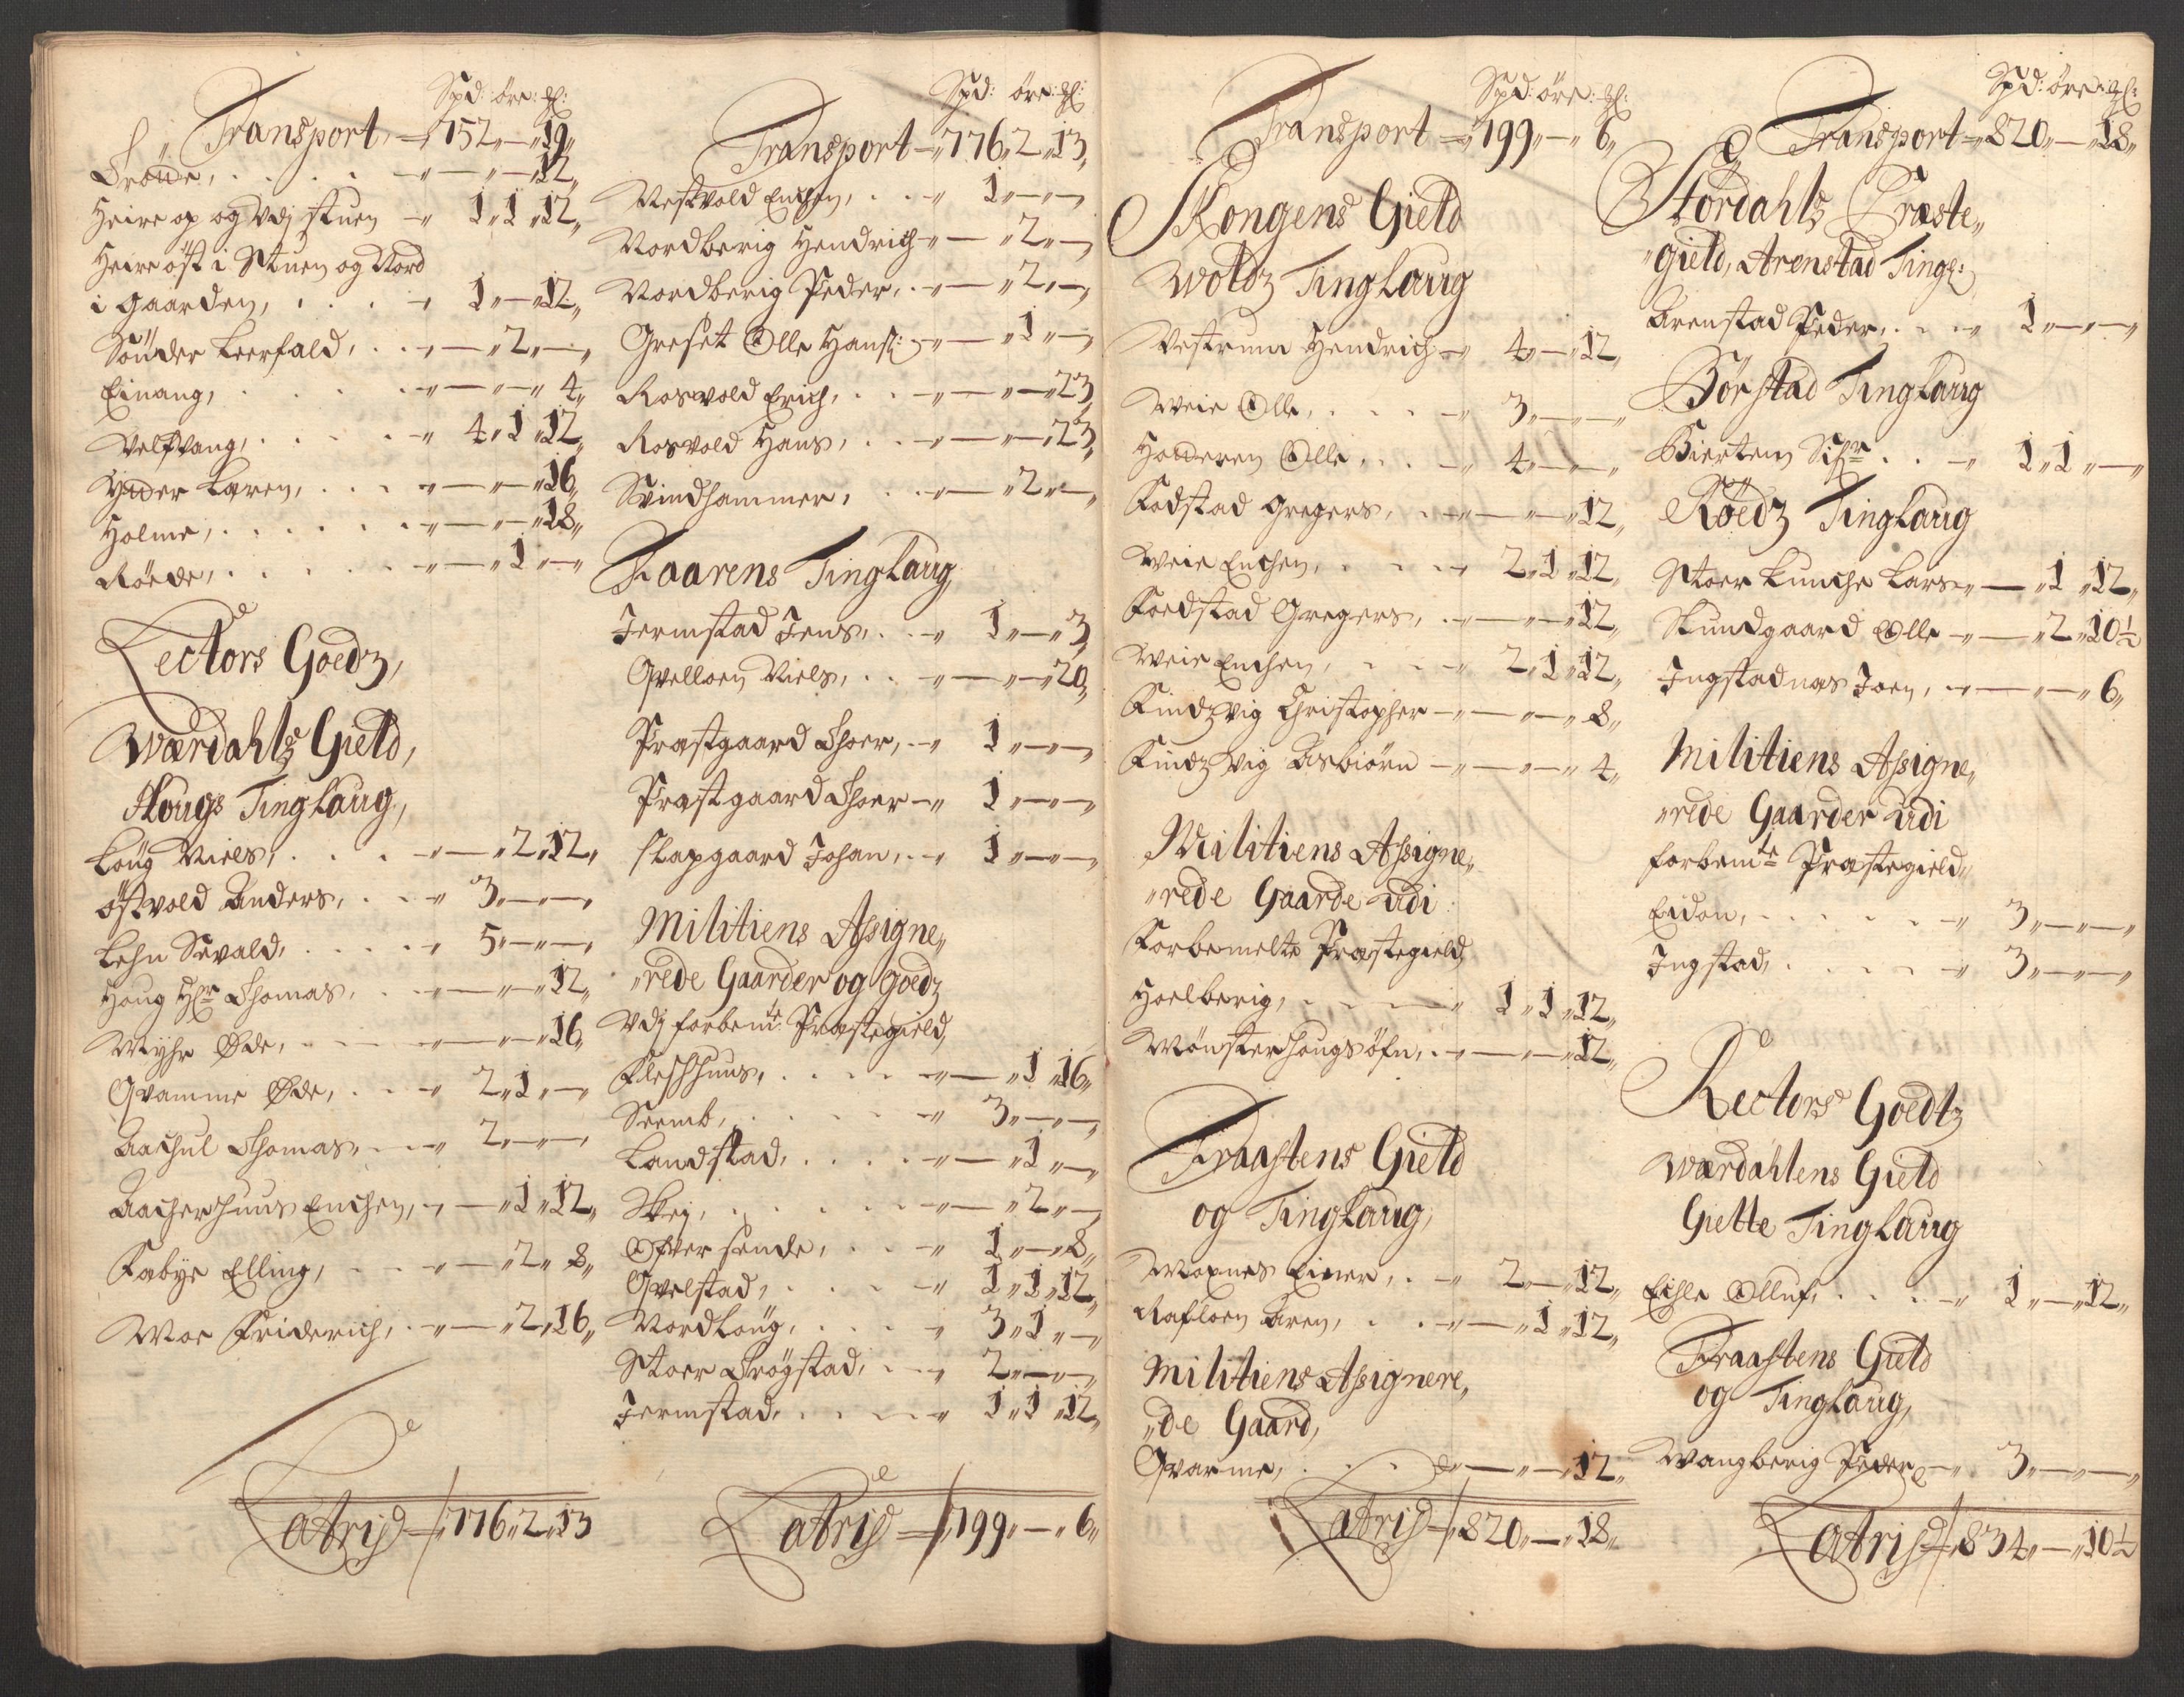 Spd: öre: gl:
Transport, — 752,, — ,,19,,
Trönes, . . . . — ,, — ,, — ,,12,,
Heire op og Vdj stuen — ,, 1,, 1,, 12,,
Heire öst i Stuen og Nord
i Gaarden, . . . . — ,, 1,, — ,,12,,
Sönder Leerfald, . . — ,, — ,, 2,, — ,,
Einang, . . . . — ,, — ,, — ,, 4,,
Velfvang, . . . . — ,, 4,, 1,, 12,,
Ytter Laren, . . . — ,, — ,, — ,,16,,
Holme, . . . . . — ,, — ,, — ,,18,,
Röede, . . . . . — ,, — ,, 1,, — ,,
Lectors Goedz,
Wærdahls Gield,
Hougs Tinglaug,
Loüg Niels, . . . — ,, — ,, 2,, 12,,
Östvold Anders, . . — ,, 3,, — ,, — ,,
Lehn Sevald, . . . . — ,, 5,, — ,, — ,,
Houg Hr Thomas, . . — ,, — ,, — ,,12,,
Myhr Øde, . . . — ,, — ,, — ,,16,,
Qvamme Øde, . . . — ,, 2,, 1,, — ,,
Aachul Thomas, . . . — ,, 2,, — ,, — ,,
Aacherhuus Enchen, — ,, — ,, 1,, 12,,
Fabye Elling, . . . — ,, — ,, 2,, 8,,
Moe Friderich, . . — ,, — ,, 2,, 16,,
Latris — 776,, 2,, 13
Spd: öre: gl:
Transport — ,, 776,, 2,, 13,,
Vestvold Enchen, . . — ,, 1,, — ,, — ,,
Nordberig Hendrich — ,, — ,, 2,, — ,,
Nordberig Peder, . . — ,, — ,, 2,, — ,,
Greset Olle Hanss: — ,, — ,, 1,, — ,,
Rosvold Erich, . . . — ,, — ,, — ,,23,,
Rosvold Hans, . . . — ,, — ,, — ,,23,,
Svindhammer, . . . — ,, — ,, 2,, — ,,
Faarens Tinglaug,
Jermstad Jens, . . — ,, 1,, — ,, 3,,
Qvelloen Niels, . . — ,, — ,, — ,,20,,
Præstgaard Thoer, . — ,, 1,, — ,, — ,,
Præstgaard Thoer — ,, 1,, — ,, — ,,
Slapgaard Johan, . — ,, 1,, — ,, — ,,
Militiens Assigne,,
,,rede Gaarder og goedz
Vdj forbemte Præstegield,
Fleshhuus, . . . . — ,, — ,, 1,, 16,,
Seemb, . . . . . — ,, 3,, — ,, — ,,
Landstad, . . . . — ,, — ,, 1,, — ,,
Skej, . . . . . — ,, — ,, 2,, — ,,
Ofver sende, . . — ,, 1,, — ,, 8,,
Qvelstad, . . . . — ,, 1,, 1,, 12,,
Nordloüg, . . . . — ,, 3,, 1,, — ,,
Stoer Trögstad, . . — ,, 2,, — ,, — ,,
Jermstad, . . . . — ,, 1,, 1,, 12,,
Latris — 799,, — ,, 6,,
Spd: öre: gl:
Transport — ,, 799,, — ,, 6,,
SKongens Gield
Woldz Tinglaug
Vestrum Hendrich — ,, 4,, — ,,12,,
Weie Olle, . . . . — ,, 3,, — ,, — ,,
Holleren Olle, . . — ,, 4,, — ,, — ,,
Fodstad Gregers, . — ,, — ,, — ,,12,,
Weie Enchen, . . . — ,, 2,, 1,, 12,,
Foedstad Gregers, . — ,, — ,, — ,,12,,
Weie Enchen, . . . — ,, 2,, 1,, 12,,
Findzvig Christopher — ,, — ,, — ,, 8,,
Findzvig Asbiörn — ,, — ,, — ,, 4,,
Militiens Assigne,,
,,rede Gaarde udi
Forbemelte Præstegield,
Hoelberig, . . . . — ,, 1,, 1,, 12,,
Mönsterhougsöfn, . — ,, — ,, — ,,12,,
Fraastens Gield
og Tinglaug,
Moxnes Einer, . — ,, 2,, — ,,12,,
Rafloen Aren, . . — ,, — ,, 1,, 12,,
Militiens Assignere,,
,,de Gaard,
Qvarme, . . . . — ,, — ,, — ,,12,,
Latris — 820,, — ,,18,,
Spd: öre: gl:
Transport — ,, 820,, — ,,18,,
Stördahls Præste,,
,,gield, Arenstad Tingl:
Arenstad Peder, . . — ,, 1,, — ,, — ,,
Börstad Tinglaug
Biertem Sifr . . — ,, 1,, 1,, — ,,
Röedz Tinglaug
Stoer Kunche Lars — ,, — ,, 1,, 12,,
Stundgaard Olle — ,, — ,, 2,, 10½
Ingstadnæs Joen, . — ,, — ,, — ,, 6,,
Militiens Assigne,,
,,rede Gaarder udi
forbemte Præstegield,,
Eidon, . . . . . — ,, 3,, — ,, — ,,
Ingstad, . . . . — ,, 3,, — ,, — ,,
Rectors Goedtz
Wærdahlens Gield
Giette Tinglaug
Eichle Olluf, . . . — ,, 1,, — ,,12,,
Fraastens Gield
og Tinglaug,
Wangberig Peder — ,, 3,, — ,, — ,,
Latris — 834,, — ,,10½